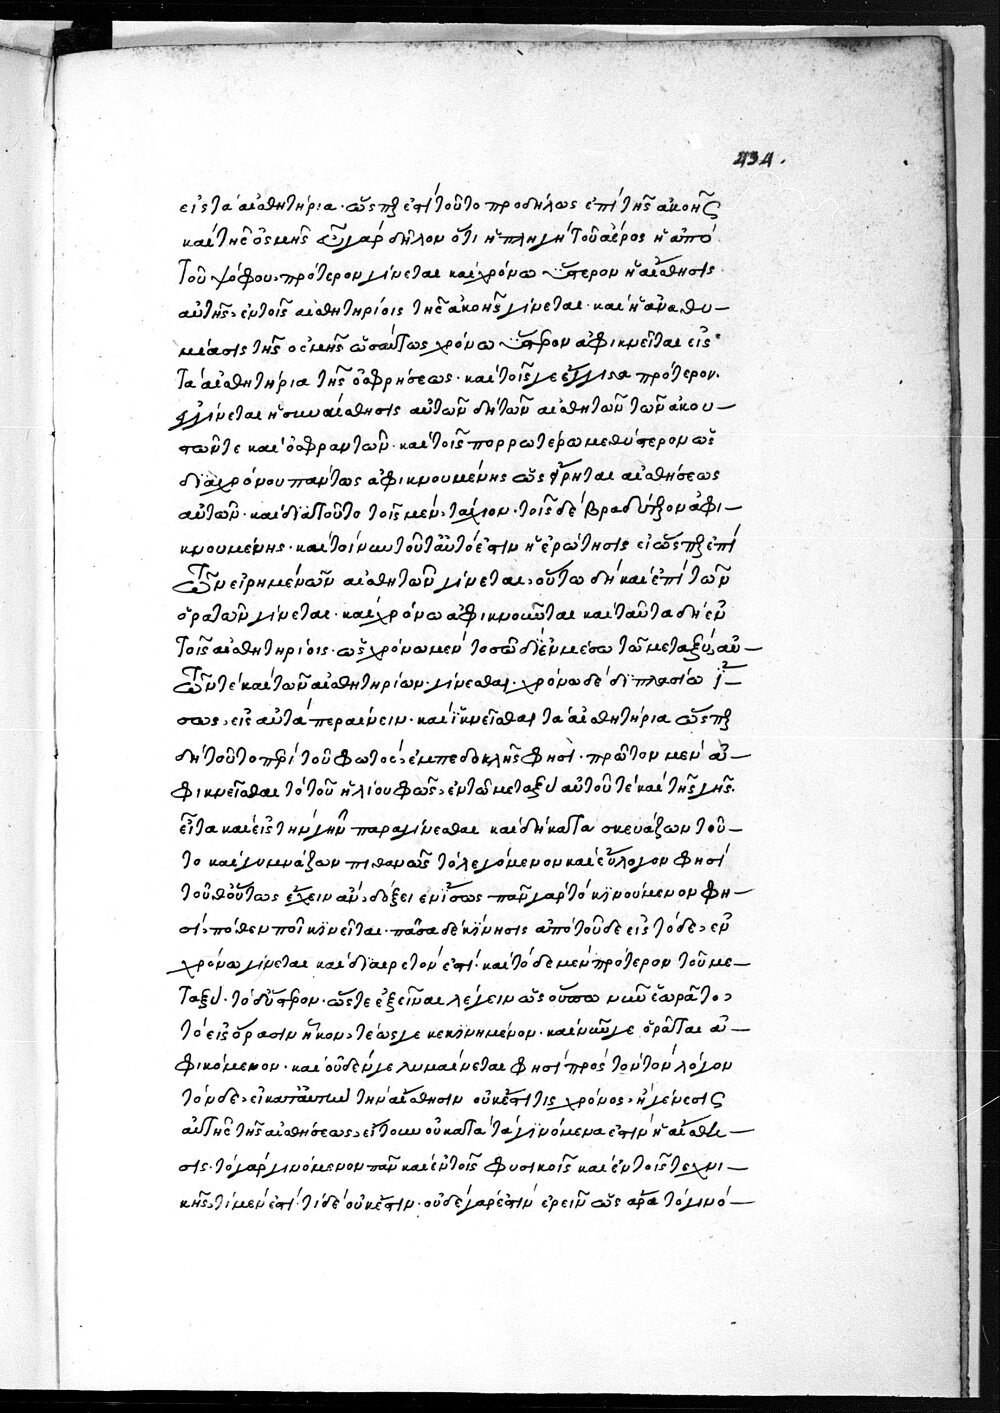 434.
εἰς τὰ αἰσθητήρια· ὥσπερ ἐπὶ τοῦτο προδήλως ἐπὶ τῆς ἀκοῆς
καὶ τῆς ὀσμῆς γὰρ δῆλον ὅτι ἡ πληγὴ τοῦ ἀέρος ἡ ἀπὸ
τοῦ ψόφου, πρότερον γίνεται καὶ χρόνω ὕστερον ἡ αἴσθησις
αὐτῆς, ἐν τοῖς αἰσθητηρίοις τῆς ἀκοῆς γίνεται· καὶ ἡ ἀναθυ-
μίασις τῆς ὀσμῆς ὡσαύτως χρόνω ὕστερον ἀφικνεῖται εἰς
τὰ αἰσθητήρια τῆς ὀσφρήσεως· καὶ τοῖς γε ἔγγιστα πρότερον
γίνεται ἡ συναίσθησις αὐτῶν δὴ τῶν αἰσθητῶν τῶν ἀκου-
στῶν τε καὶ ὀσφραντῶν· καὶ τοῖς πορρωτέρω μεθύστερον ὡς
διὰ χρόνου πάντως ἀφικνουμένης ὡς εἴρηται αἰσθήσεως
αὐτῶν· καὶ διὰ τοῦτο τοῖς μὲν, τάχιον· τοῖς δὲ βραδύτερον ἀφι-
κνουμένης· καὶ τοίνυν τοῦτ' αὐτό ἐστιν ἡ ἐρώτησις εἰ ὥσπερ ἐπὶ
τῶν εἰρημένων αἰσθητῶν γίνεται, οὕτω δὴ καὶ ἐπὶ τῶν
ὁρατῶν γίνεται· καὶ χρόνω ἀφικνοῦνται καὶ ταῦτα δὴ ἐν
τοῖς αἰσθητηρίοις· ὡς χρόνω μὲν τοσῶδε ἐν μέσω τῶ μεταξὺ, αὐ-
τῶν τε καὶ τῶν αἰσθητηρίων, γίνεσθαι· χρόνω δὲ διπλασίω ἴ-
σως, εἰς αὐτὰ περαίνειν· καὶ ἱκνεῖσθαι τὰ αἰσθητήρια ὥσπερ
δὴ τοῦτο περὶ τοῦ φωτὸς, ἐμπεδοκλῆς φησί· πρῶτον μὲν ἀ-
φικνεῖσθαι τὸ τοῦ ἡλίου φῶς, ἐν τῶ μεταξὺ αὐτοῦ τε καὶ τῆς γῆς·
εἶτα καὶ εἰς τὴν γῆν παραγίνεσθαι καὶ δὴ κατασκευάζων τοῦ-
το καὶ γυμνάζων πιθανῶς τὸ λεγόμενον καὶ εὔλογον φησὶ
τοῦθ' οὕτως ἔχειν ἂν, δόξει ἐνίσως πᾶν γὰρ τὸ κινούμενον φη-
σὶ, πόθεν ποῖ κινεῖται· πᾶσα δὲ κίνησις ἀπὸ τοῦδε εἰς τόδε, ἐν
χρόνω γίνεται καὶ διαιρετόν ἐστι· καὶ τὸ δὲ μὲν πρότερον τοῦ με-
ταξύ· τὸ δ' ὕστερον· ὥστε ἐξεῖναι λέγειν ὡς οὔπω νῦν ἑωρᾶτο,
τὸ εἰς ὅρασιν ἧκον, τέως γε κεκινημένον· καὶ νῦν γε ὁρᾶται ἀ-
φικόμενον· καὶ οὐδέν γε λυμαίνεται φησὶ πρὸς τοῦτον τὸν λόγον
τόνδε, εἰ καὶ πάντων τὴν αἴσθησιν οὐκ ἔστι τις χρόνος, ἡ γένεσις
αὐτῆς τῆς αἰσθήσεως, εἴτουν οὐ κατὰ τὰ γινόμενα ἐστὶν ἡ αἴσθη-
σις· τὸ γὰρ γινόμενον πᾶν καὶ ἐν τοῖς φυσικοῖς καὶ ἐν τοῖς τεχνι-
κῆς, τὶ μὲν ἐστὶ· τὶ δὲ οὐκ ἔστιν· οὐδὲ γὰρ ἔστιν ἐρεῖν ὡς ἄρα τὸ γινό-